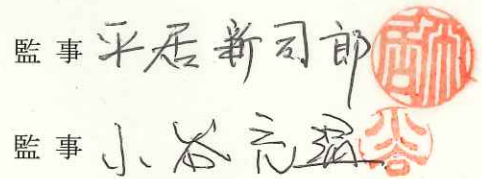 監事 平居新司郎
監事 小谷